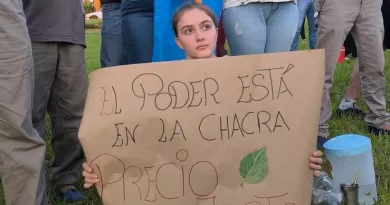 EL PODER ESTÁ
EN LA CHACRA
PRECIO